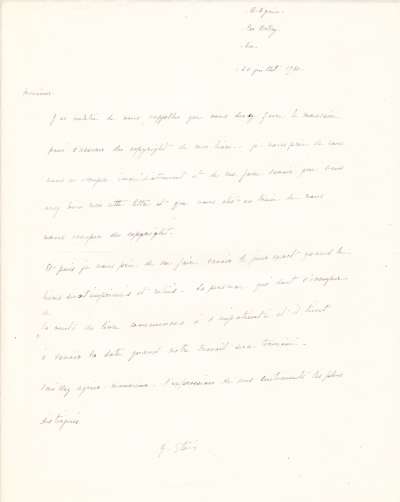 Bilignin
par Belley
Ain
20 juillet 1930
Monsieur
J'ai oublié de vous rappeler que vous devez faire le nécessaire
pour s'assurer du copyright de mon livre. Je vous prie de
vous occuper immédiatement et de me faire savoir que vous
avez bien reçu cette lettre et que vous êtes en train de vous
occuper du copyright.
Et puis je vous prie de me faire savoir le jour exact quand les
livres seront imprimés et reliés. La personne qui doit s'occuper
de
la vente du livre commence à s'impatienter et il tient
à savoir la date quand votre travail sera terminé.
Veuillez agréer monsieur l'expression de mes sentiments les plus
distingués.
G. Stein